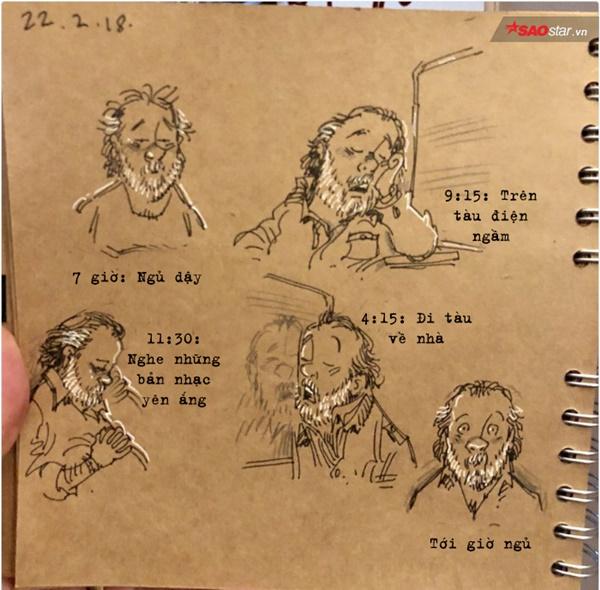 22.2.18.
SAOstar.vn
9:15: Trên
tàu điện
ngầm
7 giờ: Ngủ dậy
11:30:
Nghe những
bản nhạc
yên ắng
4:15: Đi tàu
về nhà
Tới giờ ngủ